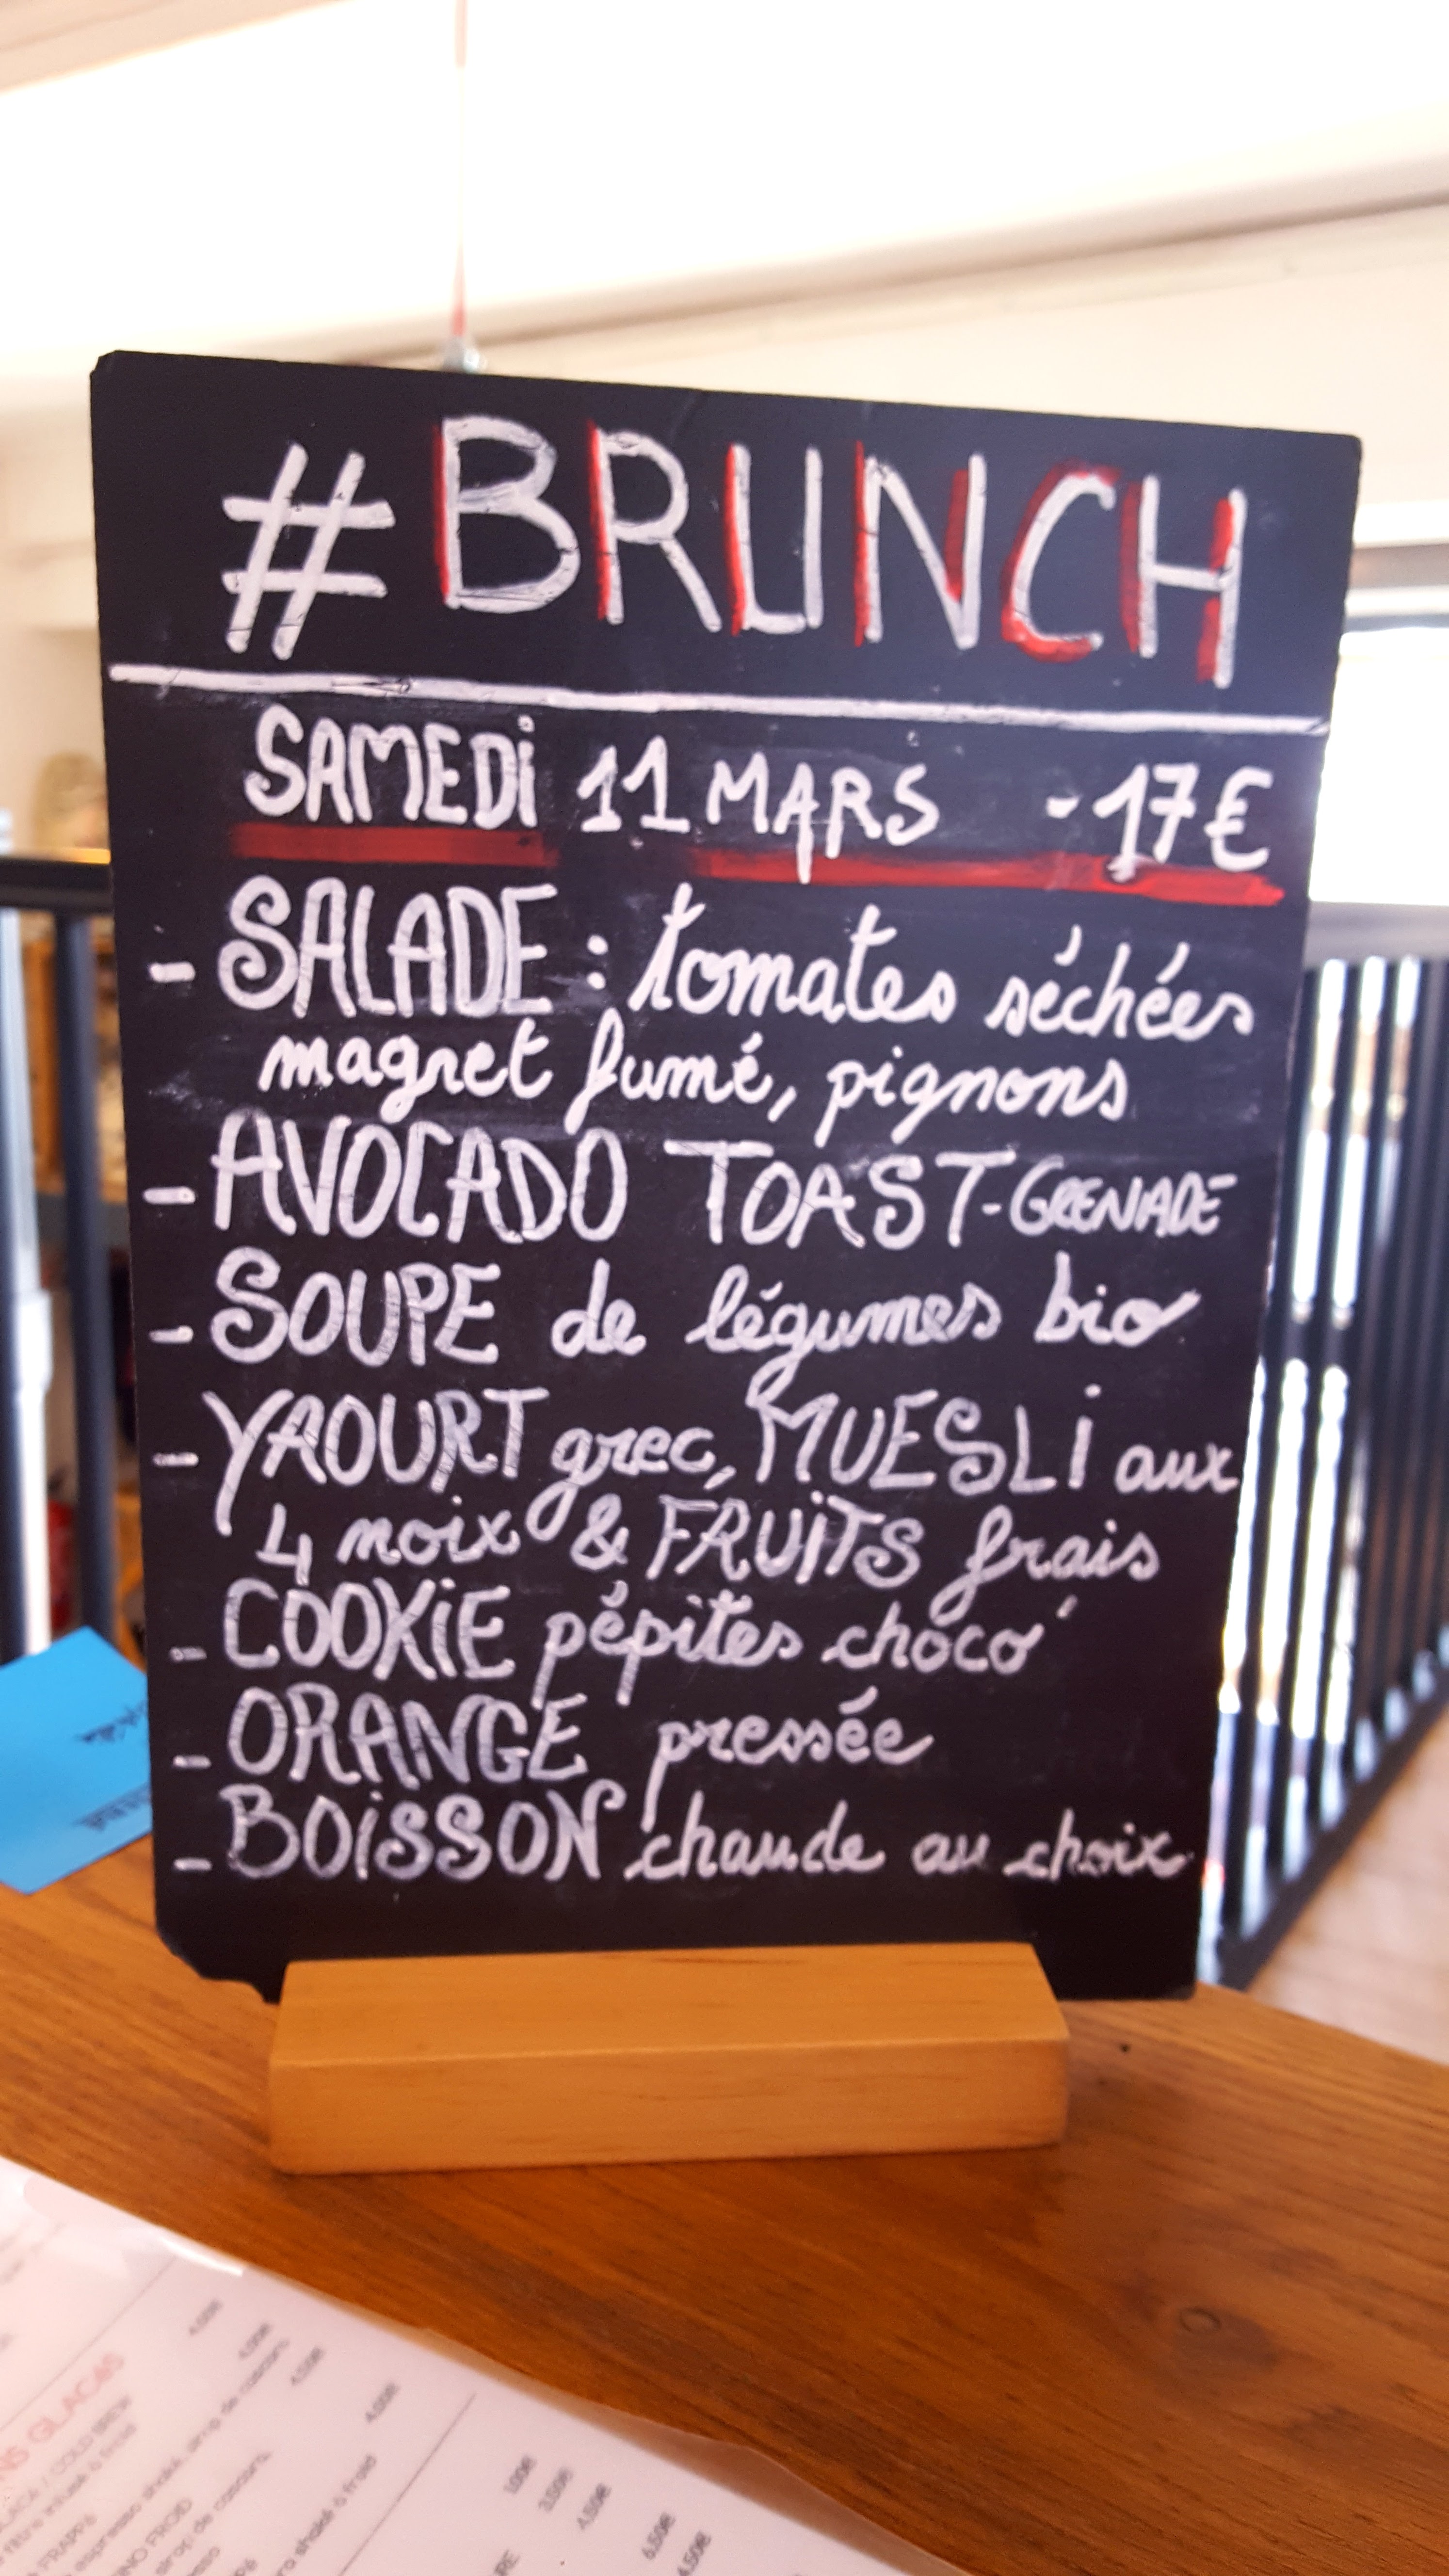 #BRUNCH
SAMEDi 11 MARS -17€
- SALADE : tomates séchées
magret fumé, pignons
- AVOCADO TOAST-GRENADE
- SOUPE de légumes bio
- YAOURT grec, MUESLi aux
4 noix & FRUiTS frais
- COOKiE pépites choco
- ORANGE pressée
- BOiSSON chaude au choix
GLACÉS
4.00€
4.00€
4.50€
4.00€
1.00€
3.50€
4.50€
6.50€
4.50€